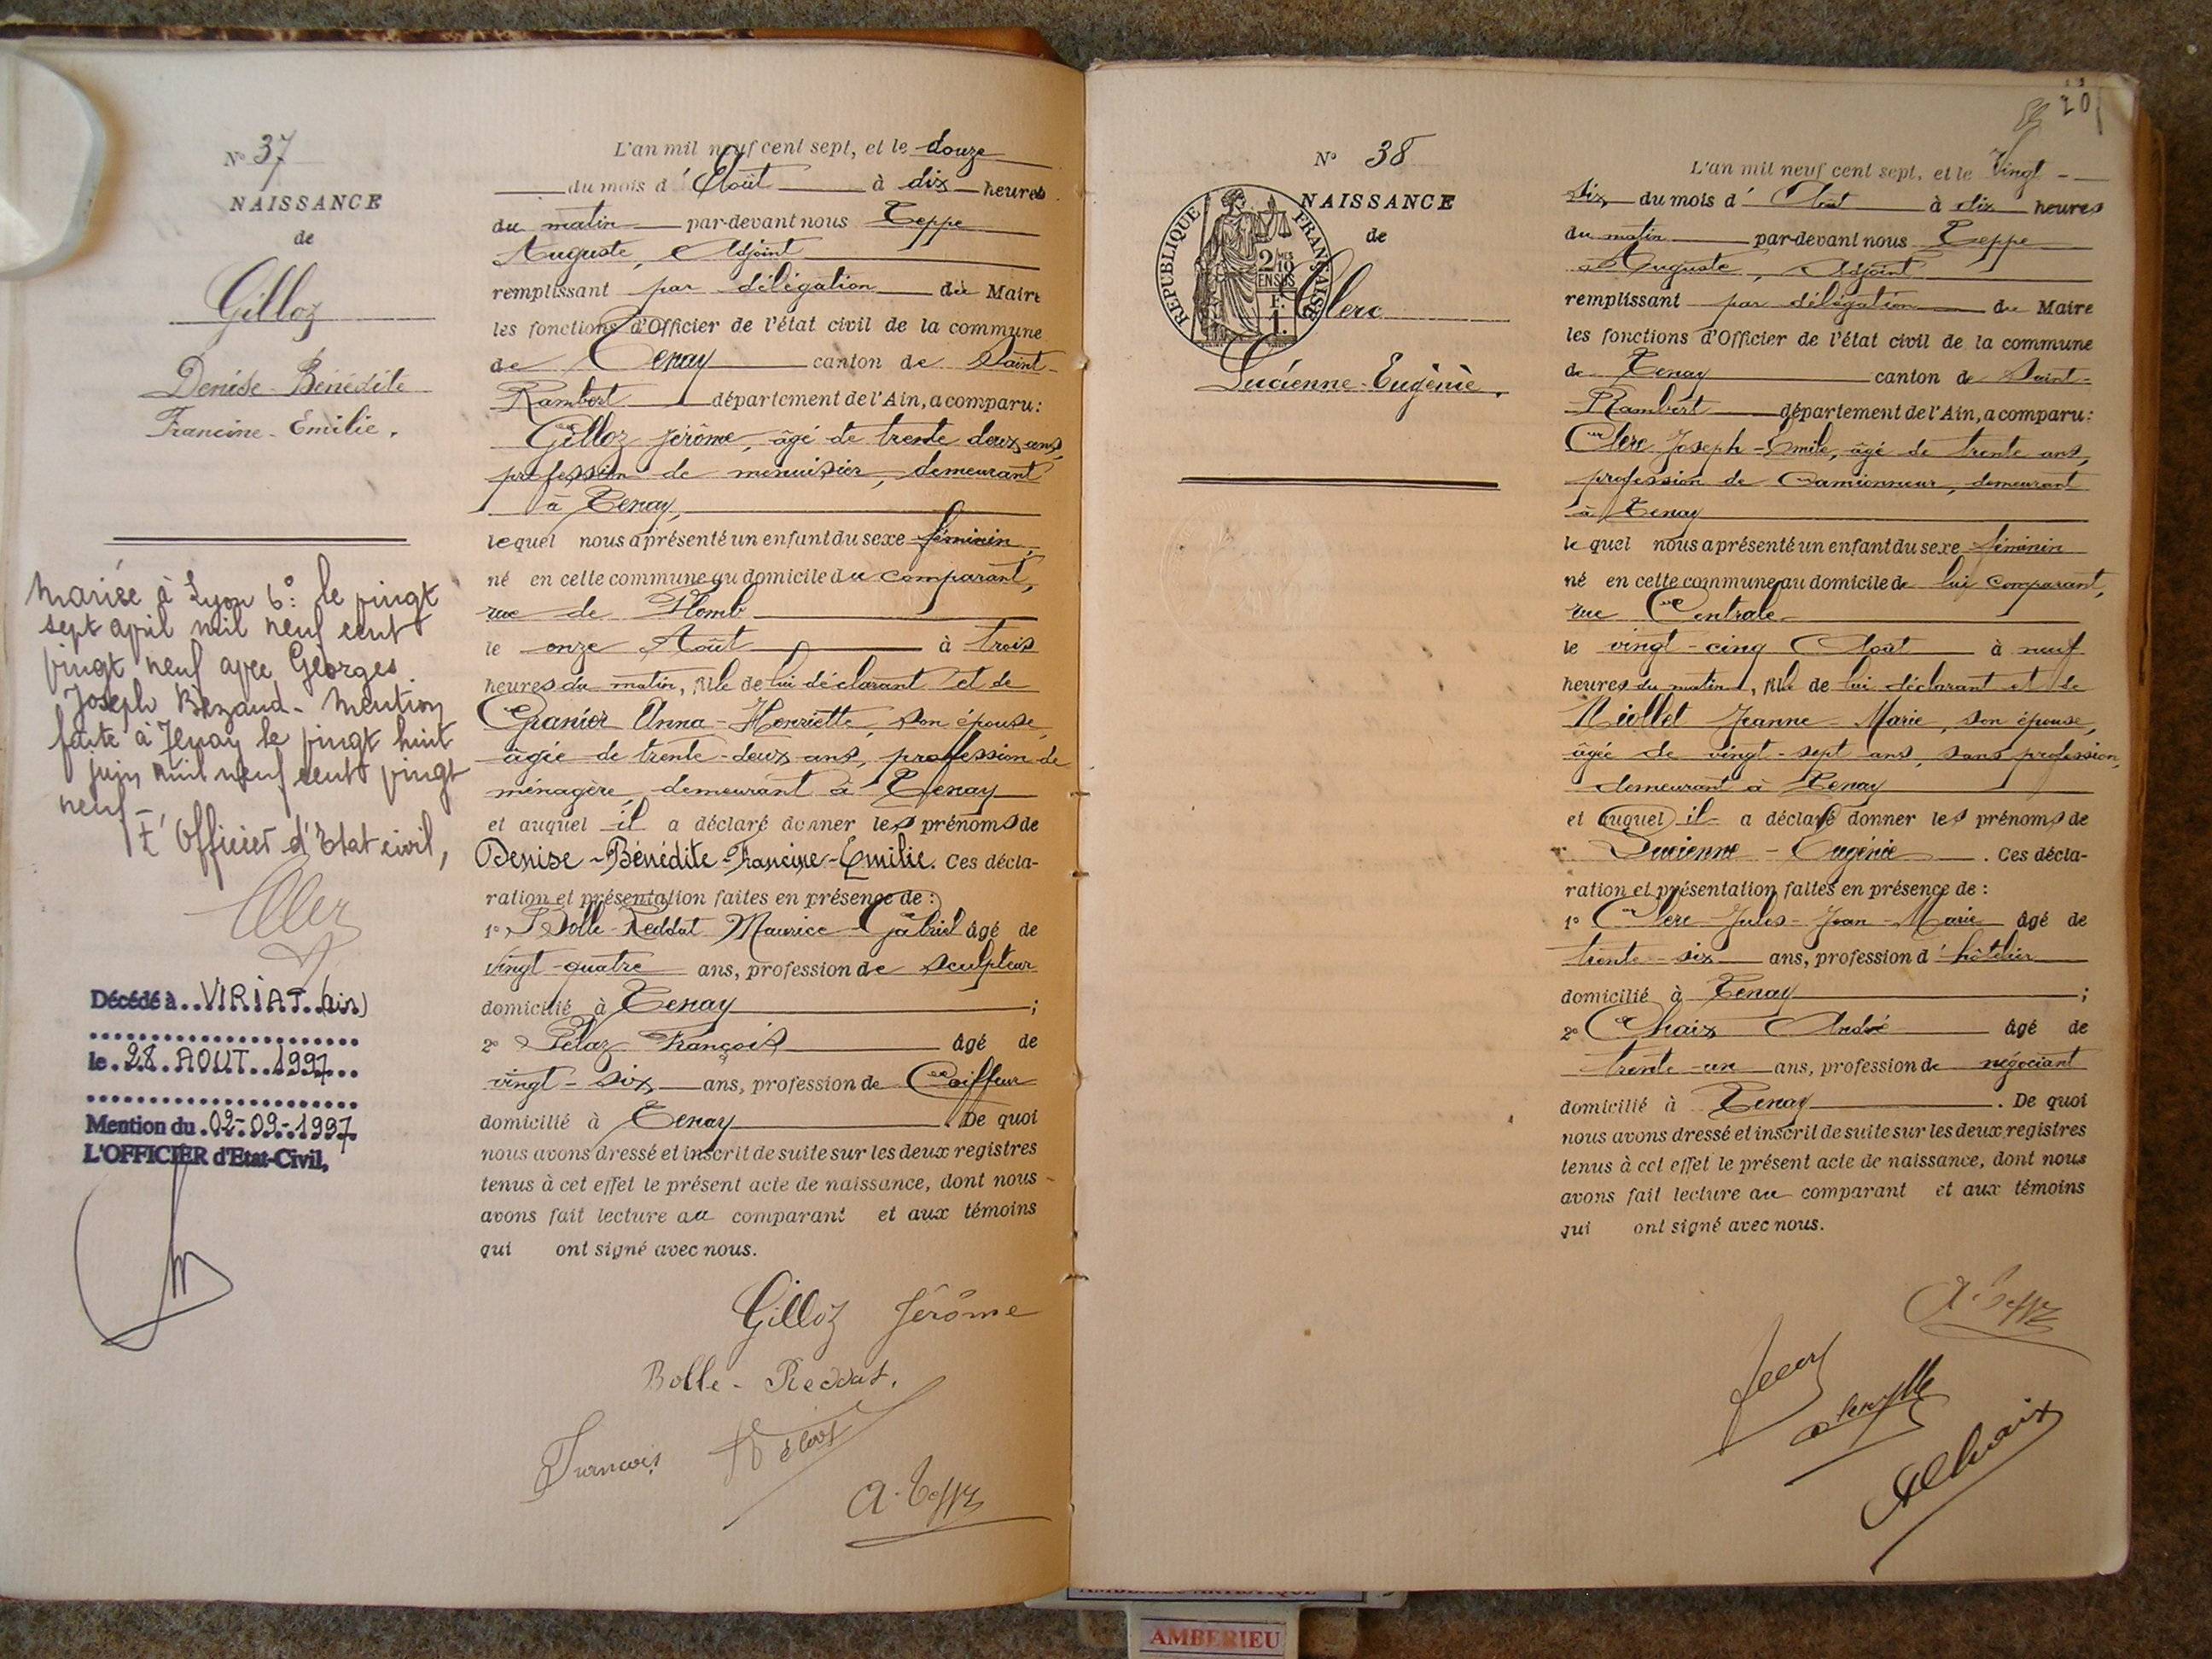 N° 37
NAISSANCE
de
Gilloz
Denise-Bénédite
Francine-Emilie.
Mariée à Lyon 6° le vingt
sept avril mil neuf cent
vingt neuf avec Georges
Joseph Bezaud - Mention
faite à Tenay le vingt huit
juin mil neuf cent vingt
neuf -
L'Officier d'Etat civil,
Décédé à VIRIAT (Ain)
le 28 AOUT 1997
Mention du 02-09-1997
L'OFFICIER d'Etat-Civil,
L'an mil neuf cent sept, et le douze
du mois d'Août à dix heures
du matin par-devant nous Teppe
Auguste, Adjoint
remplissant par délégation du Maire
les fonctions d'Officier de l'état civil de la commune
de Tenay canton de Saint-
Rambert département de l'Ain, a comparu:
Gilloz Jérôme, âgé de trente deux ans,
profession de menuisier, demeurant
à Tenay,
lequel nous a présenté un enfant du sexe féminin,
né en cette commune au domicile du comparant,
rue de Plomb
le onze Août à trois
heures du matin, fille de lui déclarant et de
Granier Anna-Henriette, son épouse,
âgée de trente-deux ans, profession de
ménagère, demeurant à Tenay
et auquel il a déclaré donner les prénoms de
Denise-Bénédite-Francine-Emilie. Ces décla-
ration et présentation faites en présence de:
1° Bolle-Reddat Maurice Gabriel âgé de
vingt-quatre ans, profession de sculpteur
domicilié à Tenay ;
2° Pélaz François âgé de
vingt-six ans, profession de Coiffeur
domicilié à Tenay . De quoi
nous avons dressé et inscrit de suite sur les deux registres
tenus à cet effet le présent acte de naissance, dont nous
avons fait lecture au comparant et aux témoins
qui ont signé avec nous.
Gilloz Jérôme
Bolle-Reddat.
François Pélaz
A. Teppe
20
N° 38
NAISSANCE
de
Clerc
Lucienne-Eugénie.
REPUBLIQUE FRANÇAISE
2/10 MES
EN SUS
F.
1.
L'an mil neuf cent sept, et le Vingt-
six du mois d'Août à dix heures
du matin par-devant nous Teppe
Auguste, Adjoint
remplissant par délégation du Maire
les fonctions d'Officier de l'état civil de la commune
de Tenay canton de Saint-
Rambert département de l'Ain, a comparu:
Clerc Joseph-Emile, âgé de trente ans,
profession de Camionneur, demeurant
à Tenay
lequel nous a présenté un enfant du sexe féminin
né en cette commune au domicile de lui comparant,
rue Centrale
le vingt-cinq Août à neuf
heures du matin, fille de lui déclarant et de
Niollet Jeanne-Marie, son épouse,
âgée de vingt-sept ans, sans profession,
demeurant à Tenay
et auquel il a déclaré donner les prénoms de
Lucienne-Eugénie. Ces décla-
ration et présentation faites en présence de:
1° Clerc Jules-Jean-Marie âgé de
trente-six ans, profession d'hôtelier
domicilié à Tenay ;
2° Chaix André âgé de
trente-un ans, profession de négociant
domicilié à Tenay . De quoi
nous avons dressé et inscrit de suite sur les deux registres
tenus à cet effet le présent acte de naissance, dont nous
avons fait lecture au comparant et aux témoins
qui ont signé avec nous.
A. Teppe
A Chaix
AMBERIEU